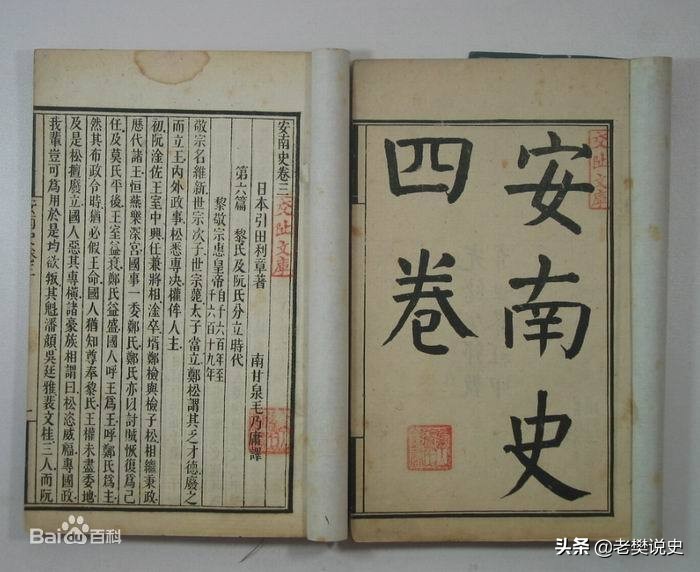 安南史
四卷
交趾文庫
安南史卷三
交趾文庫
日本引田利章著
南甘泉毛乃庸譯
第六篇 黎氏及阮氏分立時代
黎敬宗惠皇帝 自千六百年至千六百十九年
敬宗名維新世宗次子世宗薨太子當立鄭松謂其乏才德廢之
而立王內外政事松悉專決權侔人主
初阮淦佐王室中興任兼將相淦卒壻鄭檢與檢子松相繼秉政
歷代諸王恒燕樂深宮國事一委鄭氏鄭氏亦以討賊恢復爲己
任及莫氏平後王室益衰鄭氏益盛國人呼王爲王呼鄭氏爲主
然其布政令時猶必假王命國人猶知尊奉黎氏王權未盡委地
及是松擅廢立國人惡其專橫諸豪族相謂曰松恣威福專國政
我輩豈可爲用於是均欲叛其魁潘顏吳廷雅裴文桂三人而阮
Bai百科
头条 @老樊说史